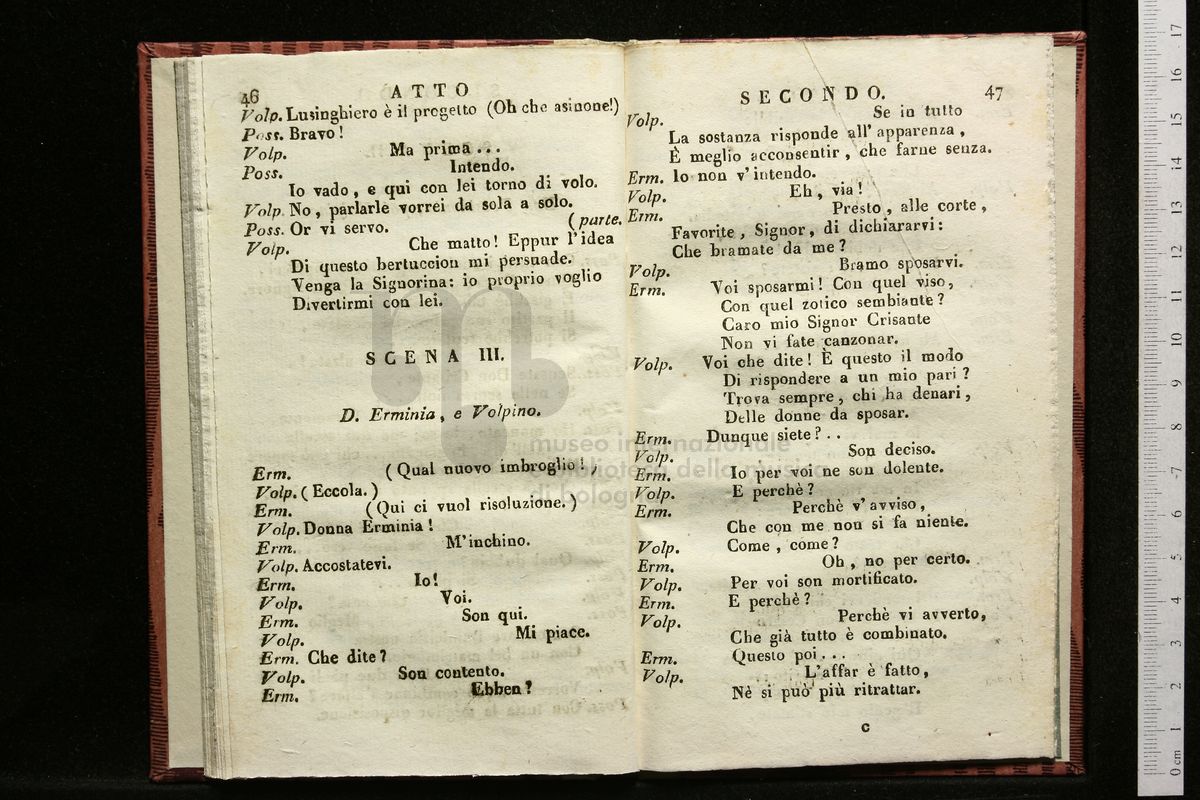 46 ATTO
Volp. Lusinghiero è il progetto (Oh che asinone!)
Poss. Bravo!
Volp. Ma prima ...
Poss. Intendo.
Io vado, e qui con lei torno di volo.
Volp. No, parlarle vorrei da sola a solo.
Poss. Or vi servo. (parte.
Volp. Che matto! Eppur l'idea
Di questo bertuccion mi persuade.
Venga la Signorina: io proprio voglio
Divertirmi con lei.
SCENA III.
D. Erminia, e Volpino.
Erm. (Qual nuovo imbroglio!)
Volp. (Eccola.)
Erm. (Qui ci vuol risoluzione.)
Volp. Donna Erminia!
Erm. M'inchino.
Volp. Accostatevi.
Erm. Io!
Volp. Voi.
Erm. Son qui.
Volp. Mi piace.
Erm. Che dite?
Volp. Son contento.
Erm. Ebben?
SECONDO. 47
Volp. Se in tutto
La sostanza risponde all' apparenza,
È meglio acconsentir, che farne senza.
Erm. Io non v'intendo.
Volp. Eh, via!
Erm. Presto, alle corte,
Favorite, Signor, di dichiararvi:
Che bramate da me?
Volp. Bramo sposarvi.
Erm. Voi sposarmi! Con quel viso,
Con quel zotico sembiante?
Caro mio Signor Crisante
Non vi fate canzonar.
Volp. Voi che dite! È questo il modo
Di rispondere a un mio pari?
Trova sempre, chi ha denari,
Delle donne da sposar.
Erm. Dunque siete?..
Volp. Son deciso.
Erm. Io per voi ne son dolente.
Volp. E perchè?
Erm. Perchè v'avviso,
Che con me non si fa niente.
Volp. Come, come?
Erm. Oh, no per certo.
Volp. Per voi son mortificato.
Erm. E perchè?
Volp. Perchè vi avverto,
Che già tutto è combinato.
Erm. Questo poi...
Volp. L'affar è fatto,
Nè si può più ritrattar.
C
museo internazionale
biblioteca della musica
di bologna
0 cm 1 2 3 4 5 6 7 8 9 10 11 12 13 14 15 16 17